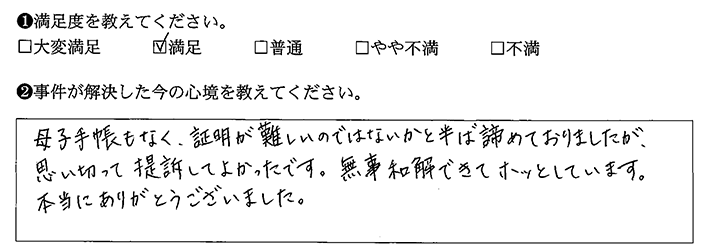 ❶満足度を教えてください。
□大変満足 ☑満足 □普通 □やや不満 □不満
❷事件が解決した今の心境を教えてください。
母子手帳もなく、証明が難しいのではないかと半ば諦めておりましたが、
思い切って提訴してよかったです。無事和解できてホッとしています。
本当にありがとうございました。